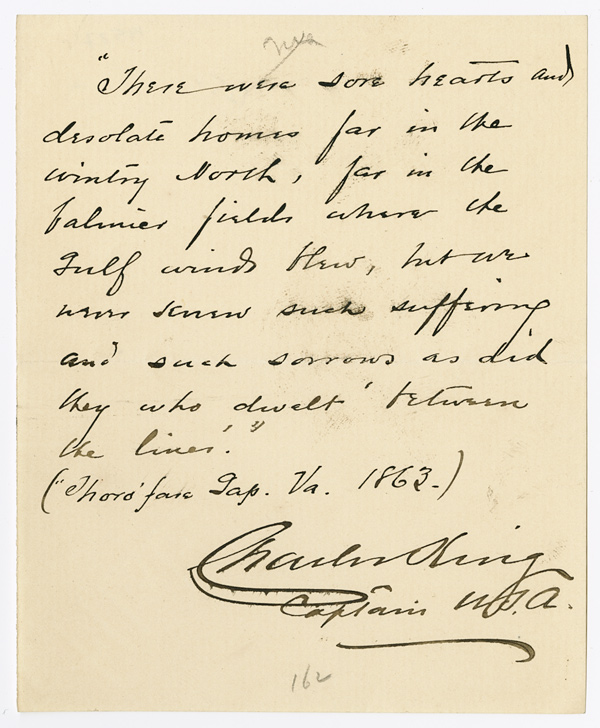 "There were sore hearts and
desolate homes far in the
wintry North, far in the
balmier fields where the
Gulf winds blew, but we
never knew such suffering
and such sorrows as did
they who dwelt 'between
the lines'."
("Thoro'fare Gap. Va. 1863.)
Charles King
Captain U.S.A.
162